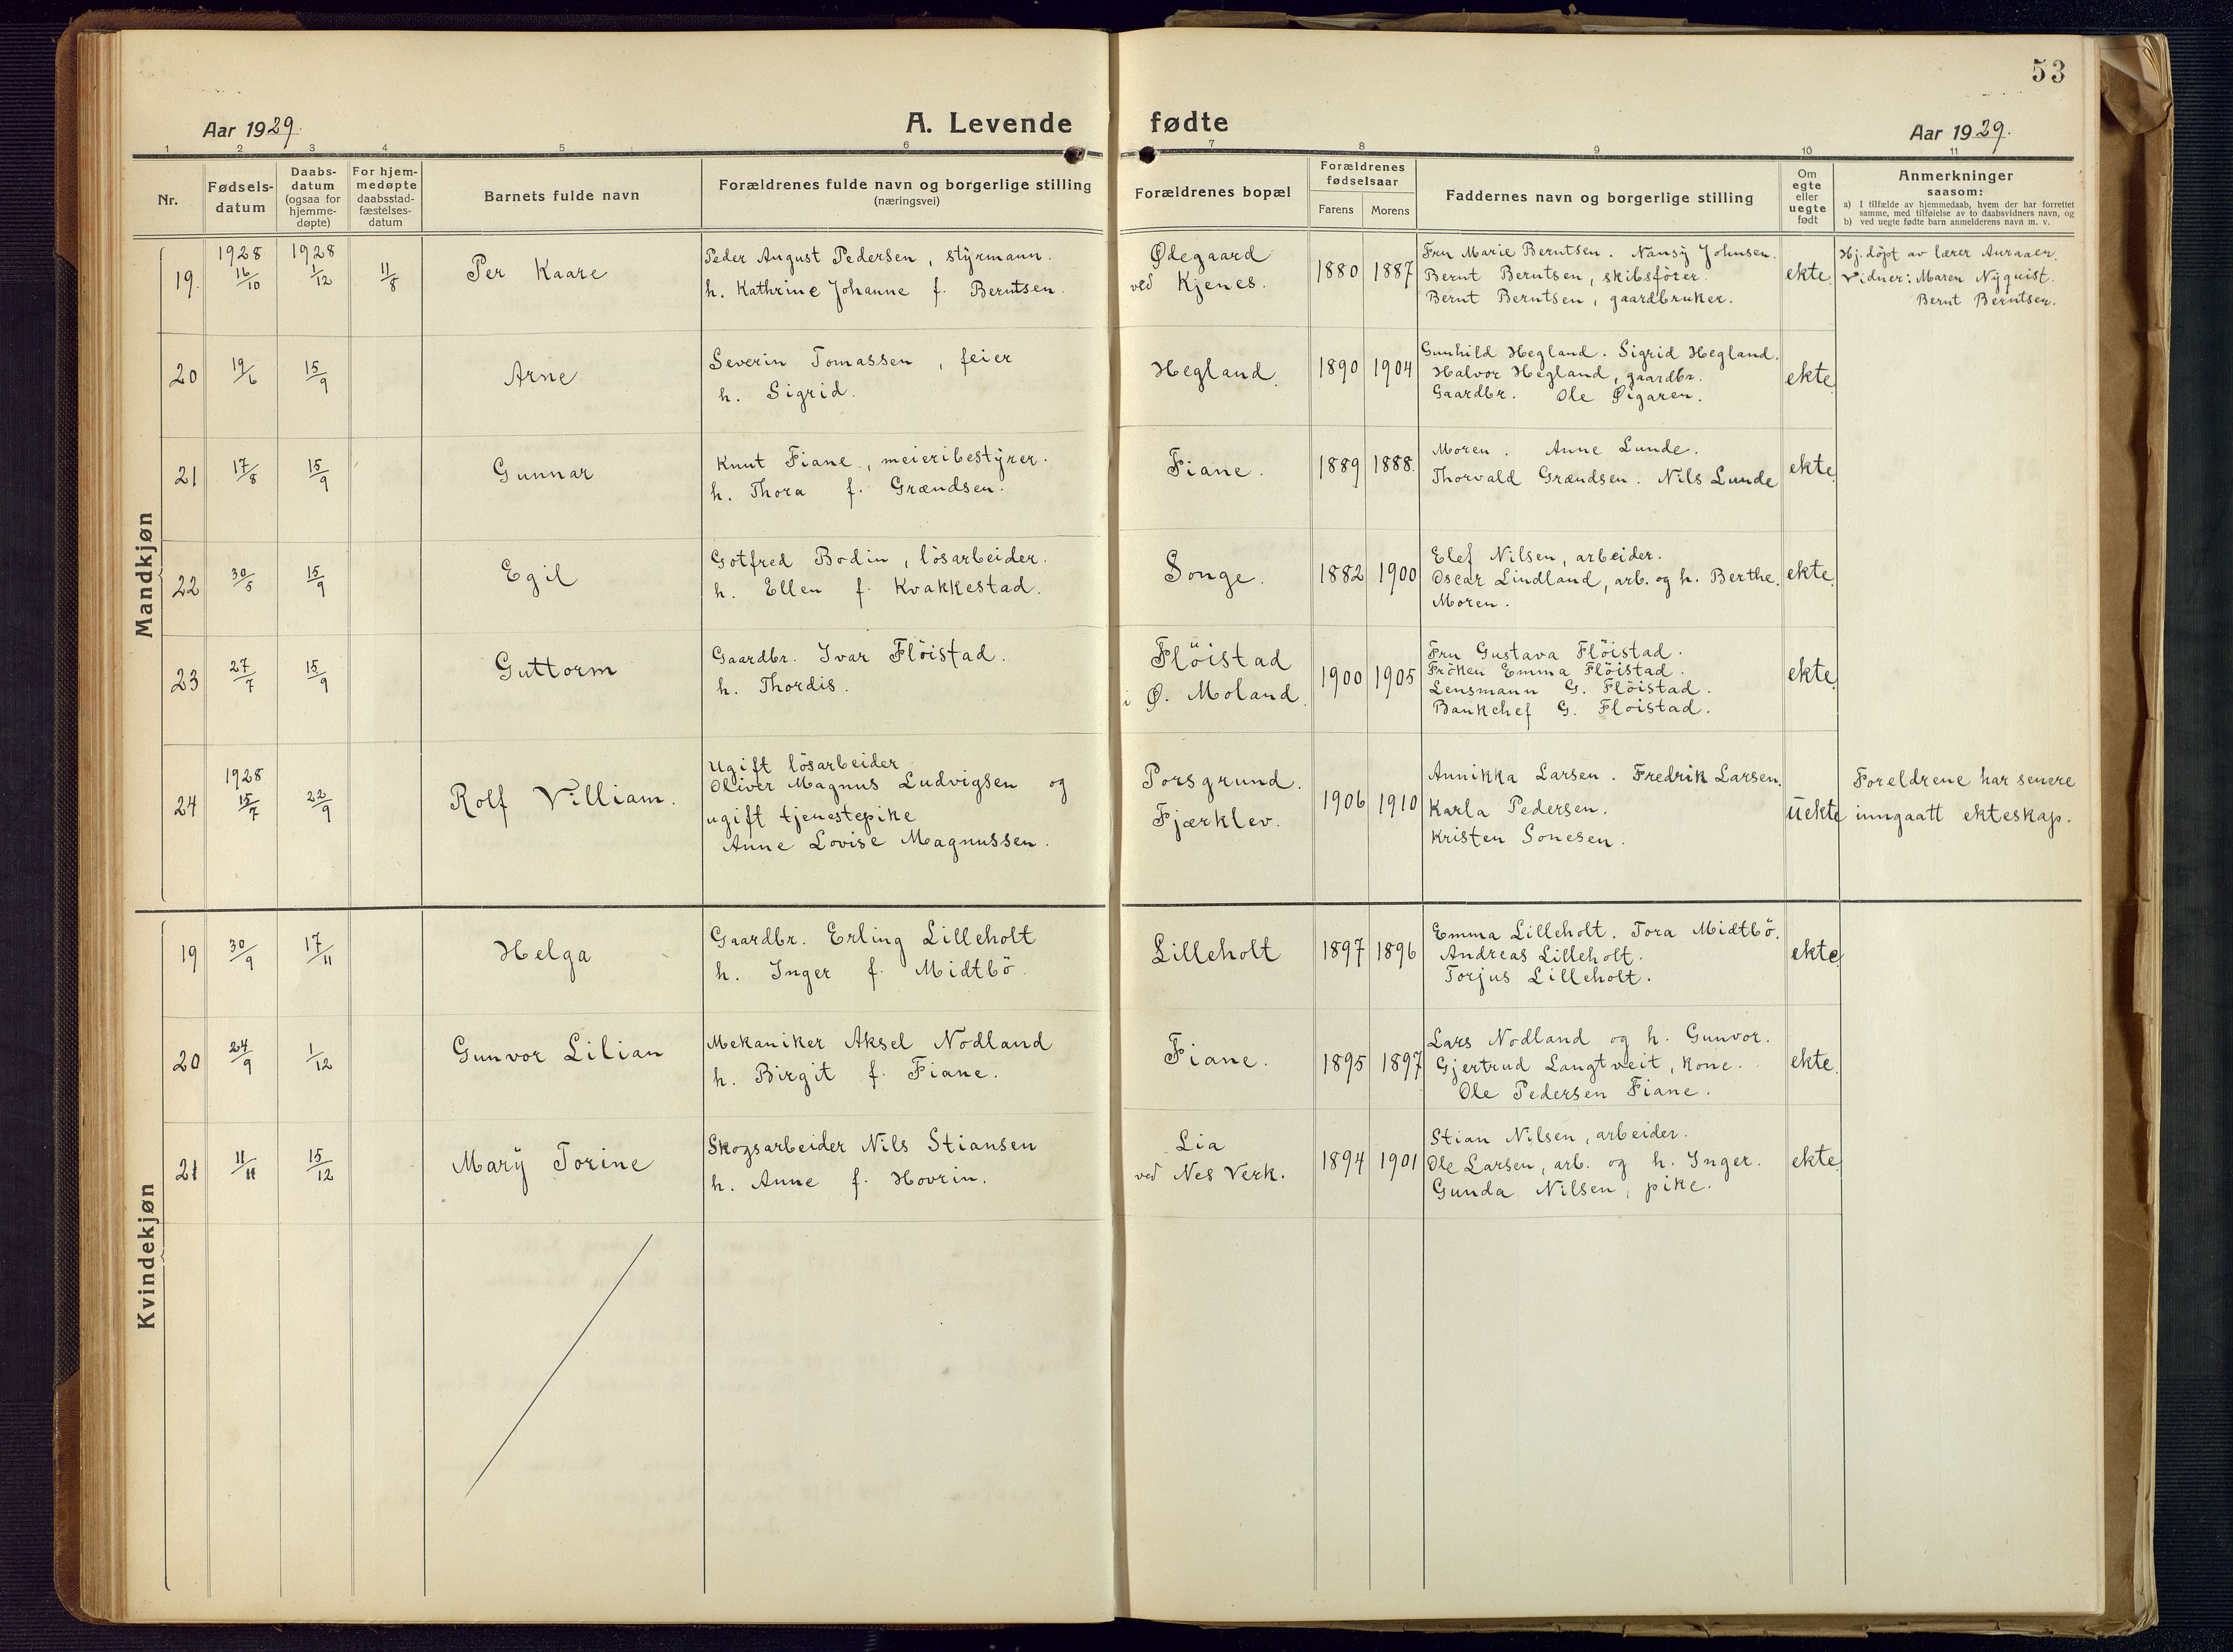 53
Aar 1929.
A. Levende fødte
Aar 1929.
1 2 3 4 5 6 7 8 9 10 11
Nr.
Fødsels-
datum
Daabs-
datum
(ogsaa for
hjemme-
døpte)
For hjem-
medøpte
daabsstad-
fæstelses-
datum
Barnets fulde navn
Forældrenes fulde navn og borgerlige stilling
(næringsvei)
Forældrenes bopæl
Forældrenes
fødselsaar
Farens Morens
Faddernes navn og borgerlige stilling
Om
egte
eller
uegte
født
Anmerkninger
saasom:
a) I tilfælde av hjemmedaab, hvem der har forrettet
samme, med tilføielse av to daabsvidners navn, og
b) ved uegte fødte barn anmelderens navn m. v.
Mandkjøn
19.
1928
16/10
1928
1/12
11/8
Per Kaare
Peder August Pedersen, styrmann.
h. Kathrine Johanne f. Berntsen.
Ødegaard
ved Kjenes.
1880 1887
Fru Marie Berntsen. Nansy Johnsen.
Bernt Berntsen, skibsförer.
Bernt Berntsen, gaardbruker.
ekte.
Hj. döpt av lærer Auraaen.
Vidner: Maren Nyquist.
Bernt Berntsen.
20 19/6 15/9
Arne
Severin Tomassen, feier
h. Sigrid.
Hegland.
1890 1904
Gunhild Hegland. Sigrid Hegland.
Halvor Hegland, gaardbr.
Gaardbr. Ole Øigaren.
ekte
21 17/8 15/9
Gunnar
Knut Fiane, meieribestyrer.
h. Thora f. Grændsen.
Fiane.
1889 1888.
Moren. Anne Lunde.
Thorvald Grændsen. Nils Lunde
ekte
22 30/5 15/9
Egil
Gotfred Bodin, lösarbeider.
h. Ellen f. Kvakkestad.
Songe.
1882 1900
Elef Nilsen, arbeider.
Oscar Lindland, arb. og h. Berthe.
Moren.
ekte.
23 27/7 15/9
Guttorm
Gaardbr. Ivar Flöistad.
h. Thordis.
Flöistad
i Ø. Moland.
1900 1905
Fru Gustava Flöistad.
Fröken Emma Flöistad.
Lensmann G. Flöistad.
Bankchef G. Flöistad.
ekte.
24
1928
15/7
22/9
Rolf Villiam.
Ugift lösarbeider
Oliver Magnus Ludvigsen og
ugift tjenestepike
Anne Lovise Magnussen.
Porsgrund.
Fjærklev.
1906 1910
Annikka Larsen. Fredrik Larsen.
Karla Pedersen.
Kristen Sonesen.
uekte
Foreldrene har senere
inngaatt ekteskap.
Kvindekjøn
19 30/9 17/11
Helga
Gaardbr. Erling Lilleholt
h. Inger f. Midtbö.
Lilleholt
1897 1896
Emma Lilleholt. Tora Midtbö.
Andreas Lilleholt.
Torjus Lilleholt.
ekte
20 24/9 1/12
Gunvor Lilian
Mekaniker Aksel Nodland
h. Birgit f. Fiane.
Fiane.
1895 1897
Lars Nodland og h. Gunvor.
Gjertrud Langtveit, kone.
Ole Pedersen Fiane.
ekte.
21 11/11 15/12
Mary Torine
Skogsarbeider Nils Stiansen
h. Anne f. Hovrin.
Lia
ved Nes Verk.
1894 1901
Stian Nilsen, arbeider.
Ole Larsen, arb. og h. Inger.
Gunda Nilsen, pike.
ekte